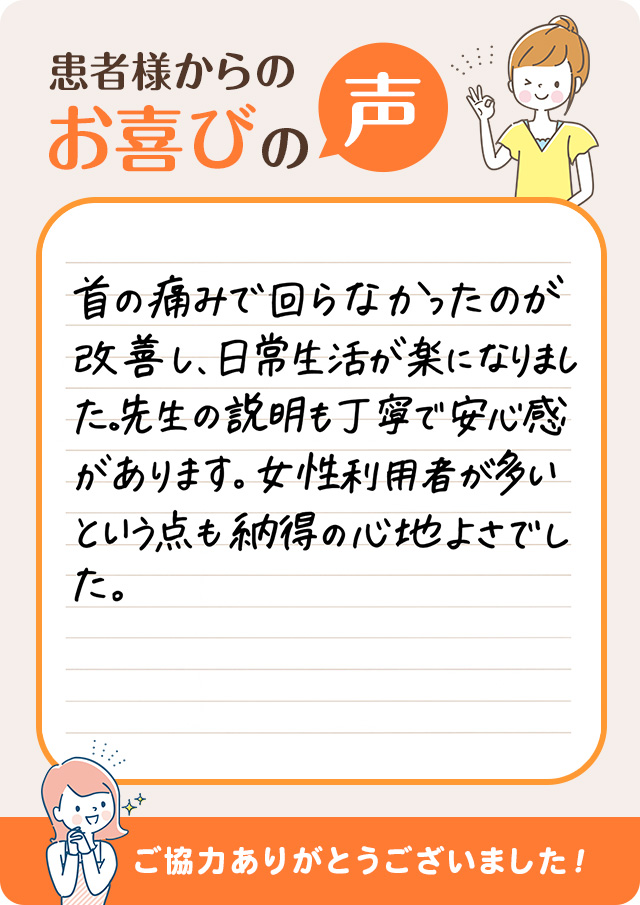 患者様からの
お喜びの声
首の痛みで回らなかったのが
改善し、日常生活が楽になりまし
た。先生の説明も丁寧で安心感
があります。女性利用者が多い
という点も納得の心地よさでし
た。
ご協力ありがとうございました!